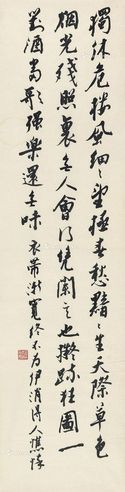 獨倚危樓風細〻望極春愁黯〻生天際草色
烟光殘照裏無人會得凭闌意也擬疏狂圖一
對酒當歌強樂還無味 衣帶漸寬終不为伊消得人憔悴